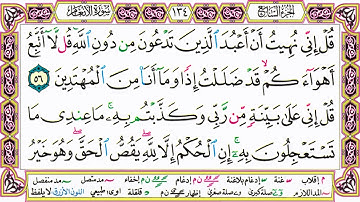 الجزء السابع ١٣٤ سورة الأنعام
قُلْ إِنِّي نُهِيتُ أَنْ أَعْبُدَ الَّذِينَ تَدْعُونَ مِن دُونِ اللَّهِ قُل لَّا أَتَّبِعُ
أَهْوَاءَكُمْ قَدْ ضَلَلْتُ إِذًا وَمَا أَنَا مِنَ الْمُهْتَدِينَ ٥٦
قُلْ إِنِّي عَلَىٰ بَيِّنَةٍ مِّن رَّبِّي وَكَذَّبْتُم بِهِ مَا عِندِي مَا
تَسْتَعْجِلُونَ بِهِ إِنِ الْحُكْمُ إِلَّا لِلَّهِ يَقُصُّ الْحَقَّ وَهُوَ خَيْرُ